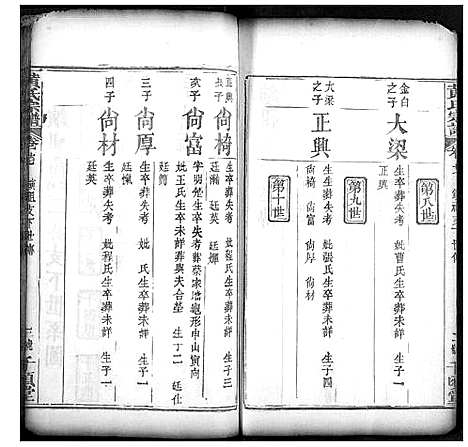 黄氏宗譜
第八世
金白之子
大梁
生卒葬失考 妣曹氏生卒葬未詳 生子一
正興
第九世
大梁之子
正興
生卒葬失考 妣張氏生卒葬未詳 生子四
尙椅 尙富 尙厚 尙材
第十世
正興長子
尙椅
生卒葬失考 妣程氏生卒葬未詳 生子三
廷瀚 廷英 廷輝
次子
尙富
字明 生卒失考葬蔡家塘龜形申山寅向
妣王氏生卒未詳葬與夫合塋 生子二 廷仕
三子
尙厚
生卒葬失考 妣 氏生卒葬未詳 生子一
廷
四子
尙材
生卒葬失考 妣程氏生卒葬未詳 生子一
廷英
黄氏宗譜
下世傳
千頃堂